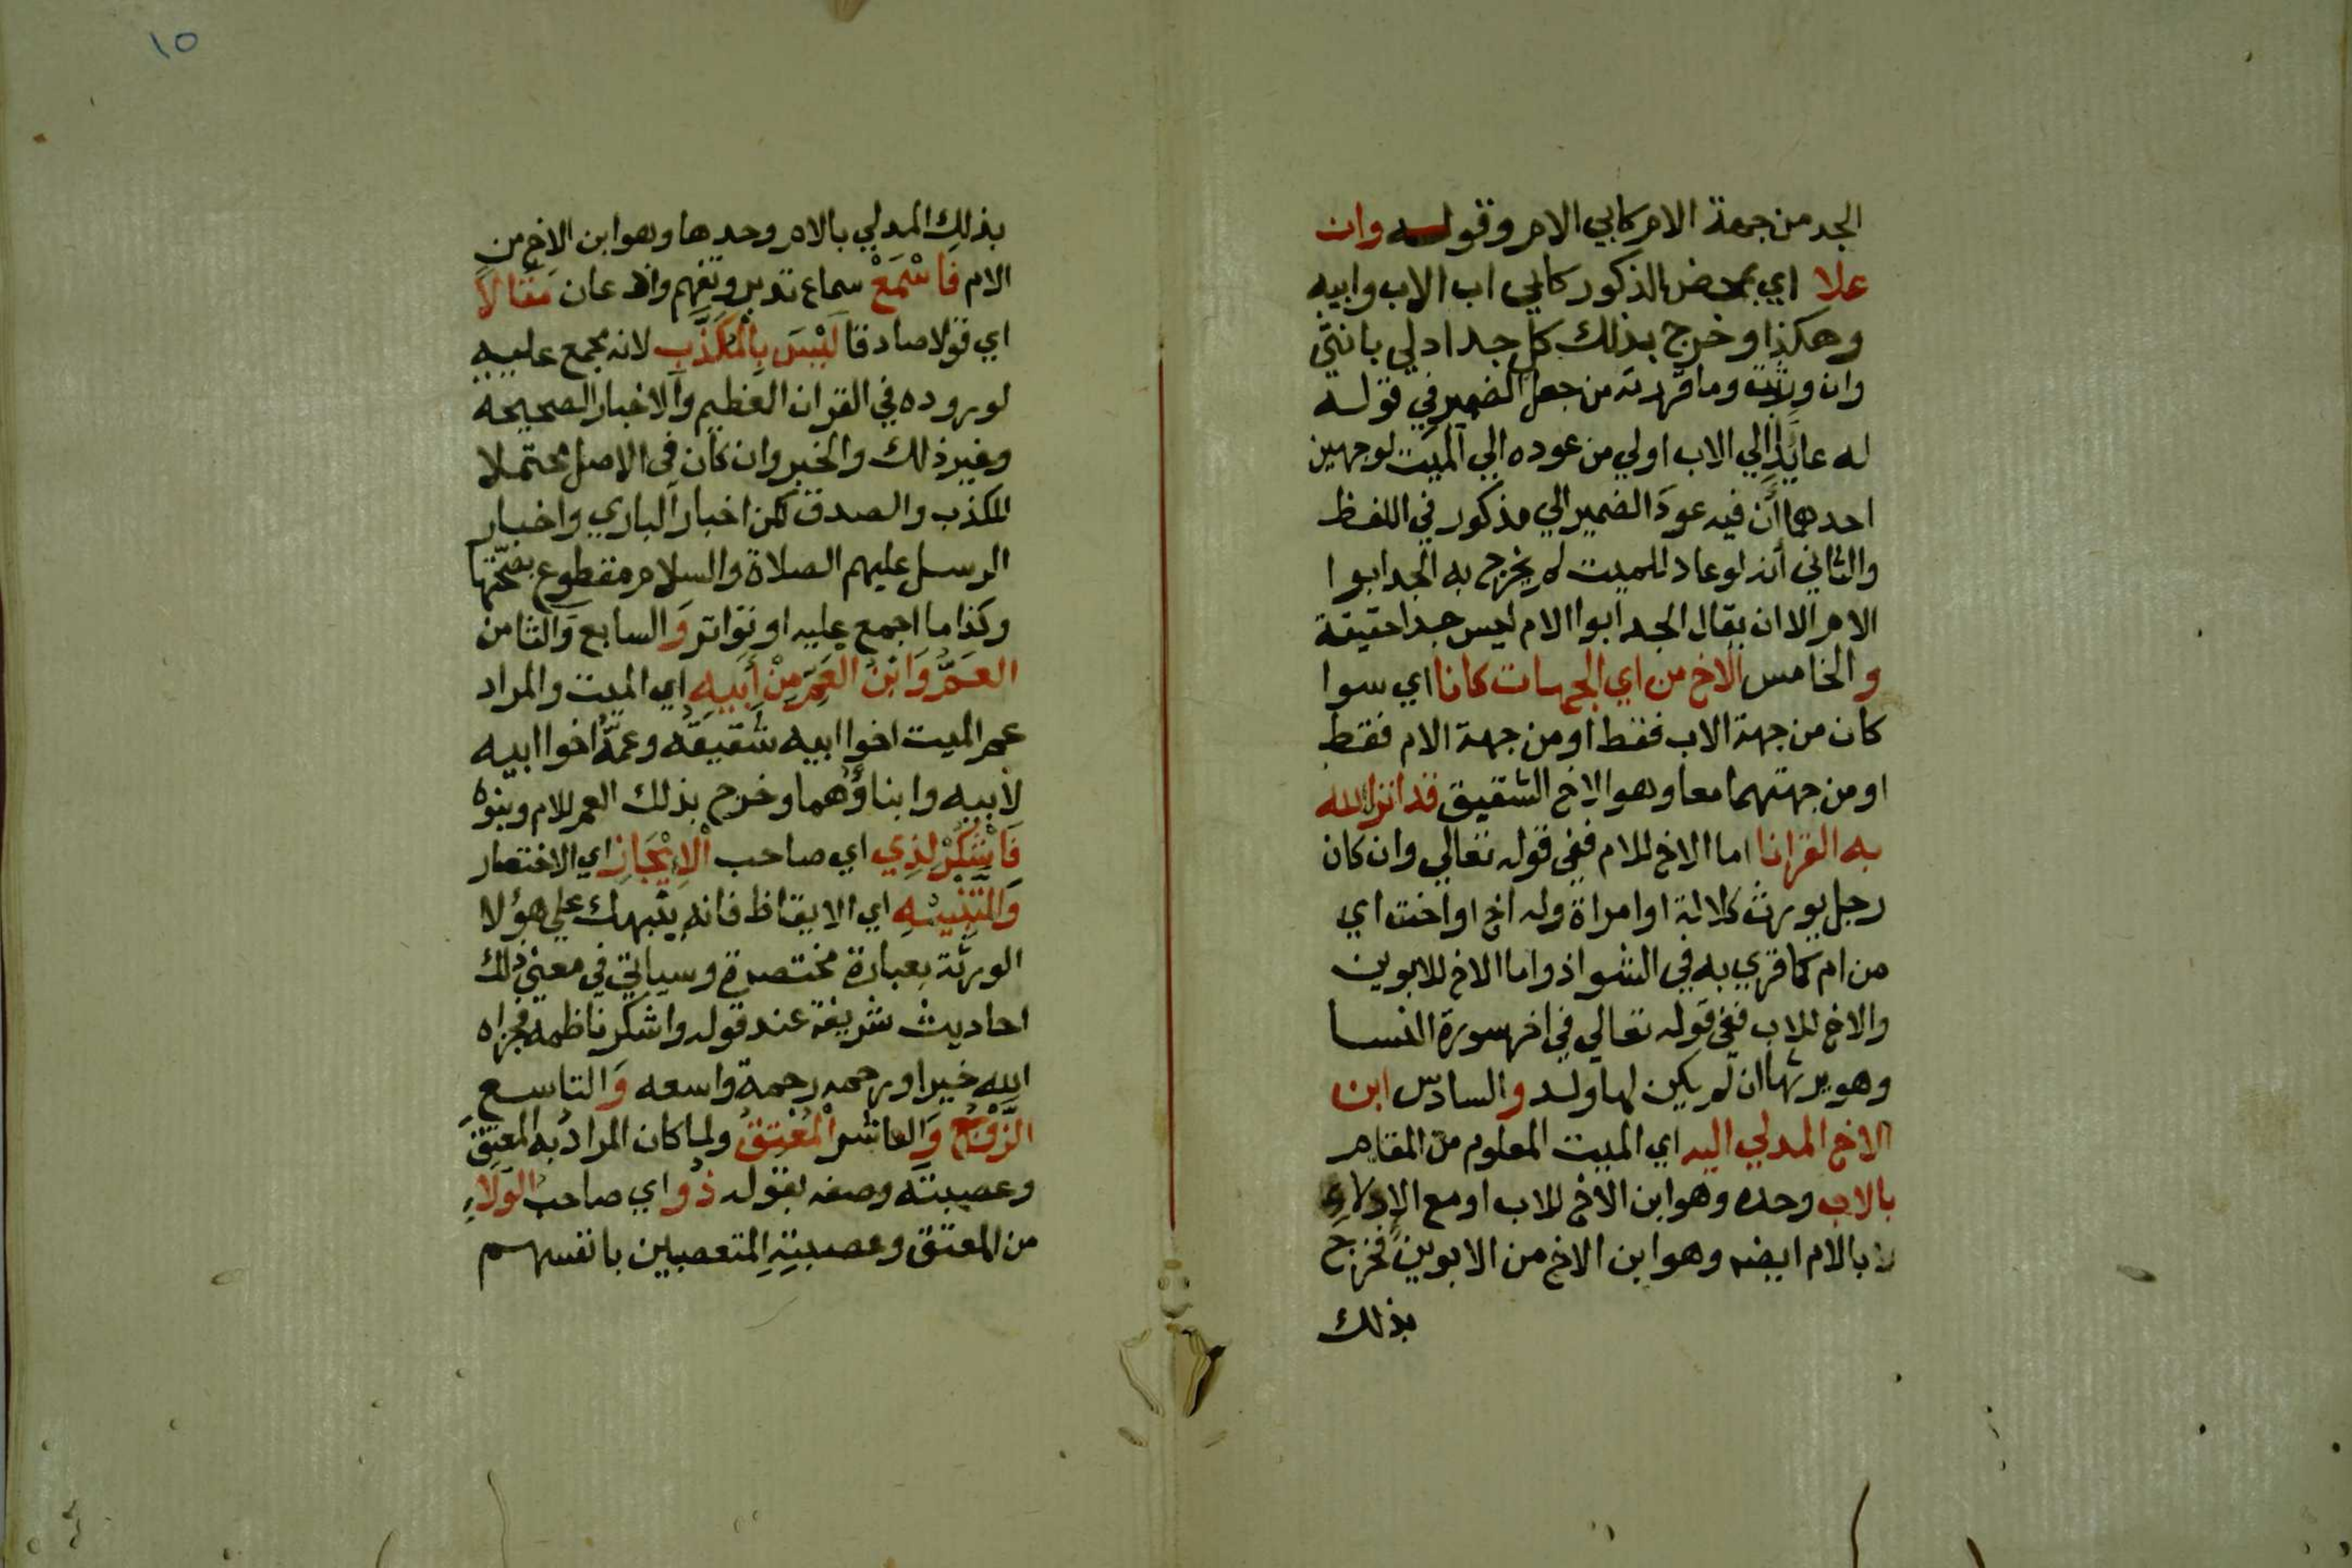 الجد من جهة الام كابي الام وقوله وان
علا اي بمحض الذكور كابي اب الاب وابيه
وهكذا وخرج بذلك كل جد ادلي بانثى
وان ورثت وما قررته من جعل الضمير في قوله
له عايدا الي الاب اولي من عوده الي الميت لوجهين
احدهما أن فيه عودَ الضمير الي مذكور في اللفظ
والثاني أنه لو عاد للميت لم يخرج به الجد ابوا
الام الا ان يقال الجد ابوا الام ليس جدا حقيقة
و الخامس الاخ من اي الجهات كانا اي سوا
كان من جهة الاب فقط او من جهة الام فقط
او من جهتهما معا وهو الاخ الشقيق قد انزل الله
به القرانا اما الاخ للام ففي قوله تعالي وان كان
رجل يورث كلالة او امراة وله اخ او اخت اي
من ام كما قري به في الشواذ واما الاخ للابوين
والاخ للاب ففي قوله تعالي في اخر سورة النسا
وهو يرثها ان لم يكن لها ولد والسادس ابن
الاخ المدلي اليه اي الميت المعلوم من المقام
بالاب وحده وهو ابن الاخ للاب او مع الادلاء
لا بالام ايضه وهو ابن الاخ من الابوين فخرج
بذلك
١٥
بذلك المدلي بالام وحدها وهو ابن الاخ من
الام فَاسْمَعْ سماع تدبر وتفهم واذعان مَقَالاً
اي قولا صادقا لَيْسَ بِالْمُكَذَّبِ لانه مجمع عليه
لوروده في القران العظيم والاخبار الصحيحة
وغير ذلك والخبر وان كان في الاصل محتملا
للكذب والصدق لكن اخبار الباري واخبار
الرسل عليهم الصلاة والسلام مقطوع بصحتها
وكذا ما اجمع عليه او تواتر وَالسابع وَالثامن
العَمُّ وَابْنُ العَمِّ مِنْ أَبِيهِ اي الميت والمراد
عم الميت اخوا ابيه شقيقه وعمّه اخوا ابيه
لأبيه وابناؤهما وخرج بذلك العم للام وبنوه
فَاشْكُرْ لِذِي اي صاحب الْاِيْجَازِ اي الاختصار
وَالتَّنْبِيْهِ اي الايقاظ فانه ينبهك علي هؤلا
الورثة بعبارة مختصرة وسياتي في معني ذلك
احاديث شريفة عند قوله واشكر ناظمه فجزاه
الله خيرا ورحمه رحمة واسعه وَالتاسع
الزَّوْجُ وَالعاشر الْمُعْتِقُ ولما كان المراد به المعتِقَ
وعصبته وصفه بقوله ذُو اي صاحب الوَلَاءِ
من المعتق وعصبتهِ المتعصبين بانفسهم